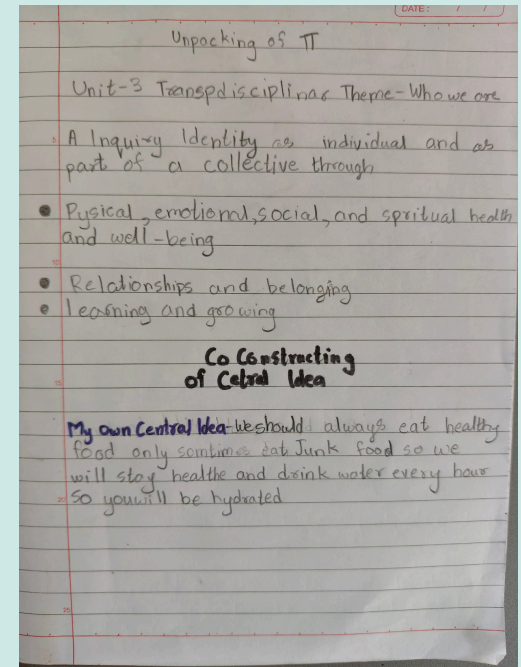 DATE: / /
Unpacking of TT
Unit-3 Transpdisciplinar Theme-Who we are
A Inquiry Identity as individual and as
part of a collective through
• Pysical, emotional, social, and spritual health
and well-being
• Relationships and belonging
• learning and growing
Co Constructing
of Cetral Idea
My own Central Idea-we should always eat healthy
food only somtimes eat Junk food so we
will stay healthe and drink water every hour
So you will be hydrated